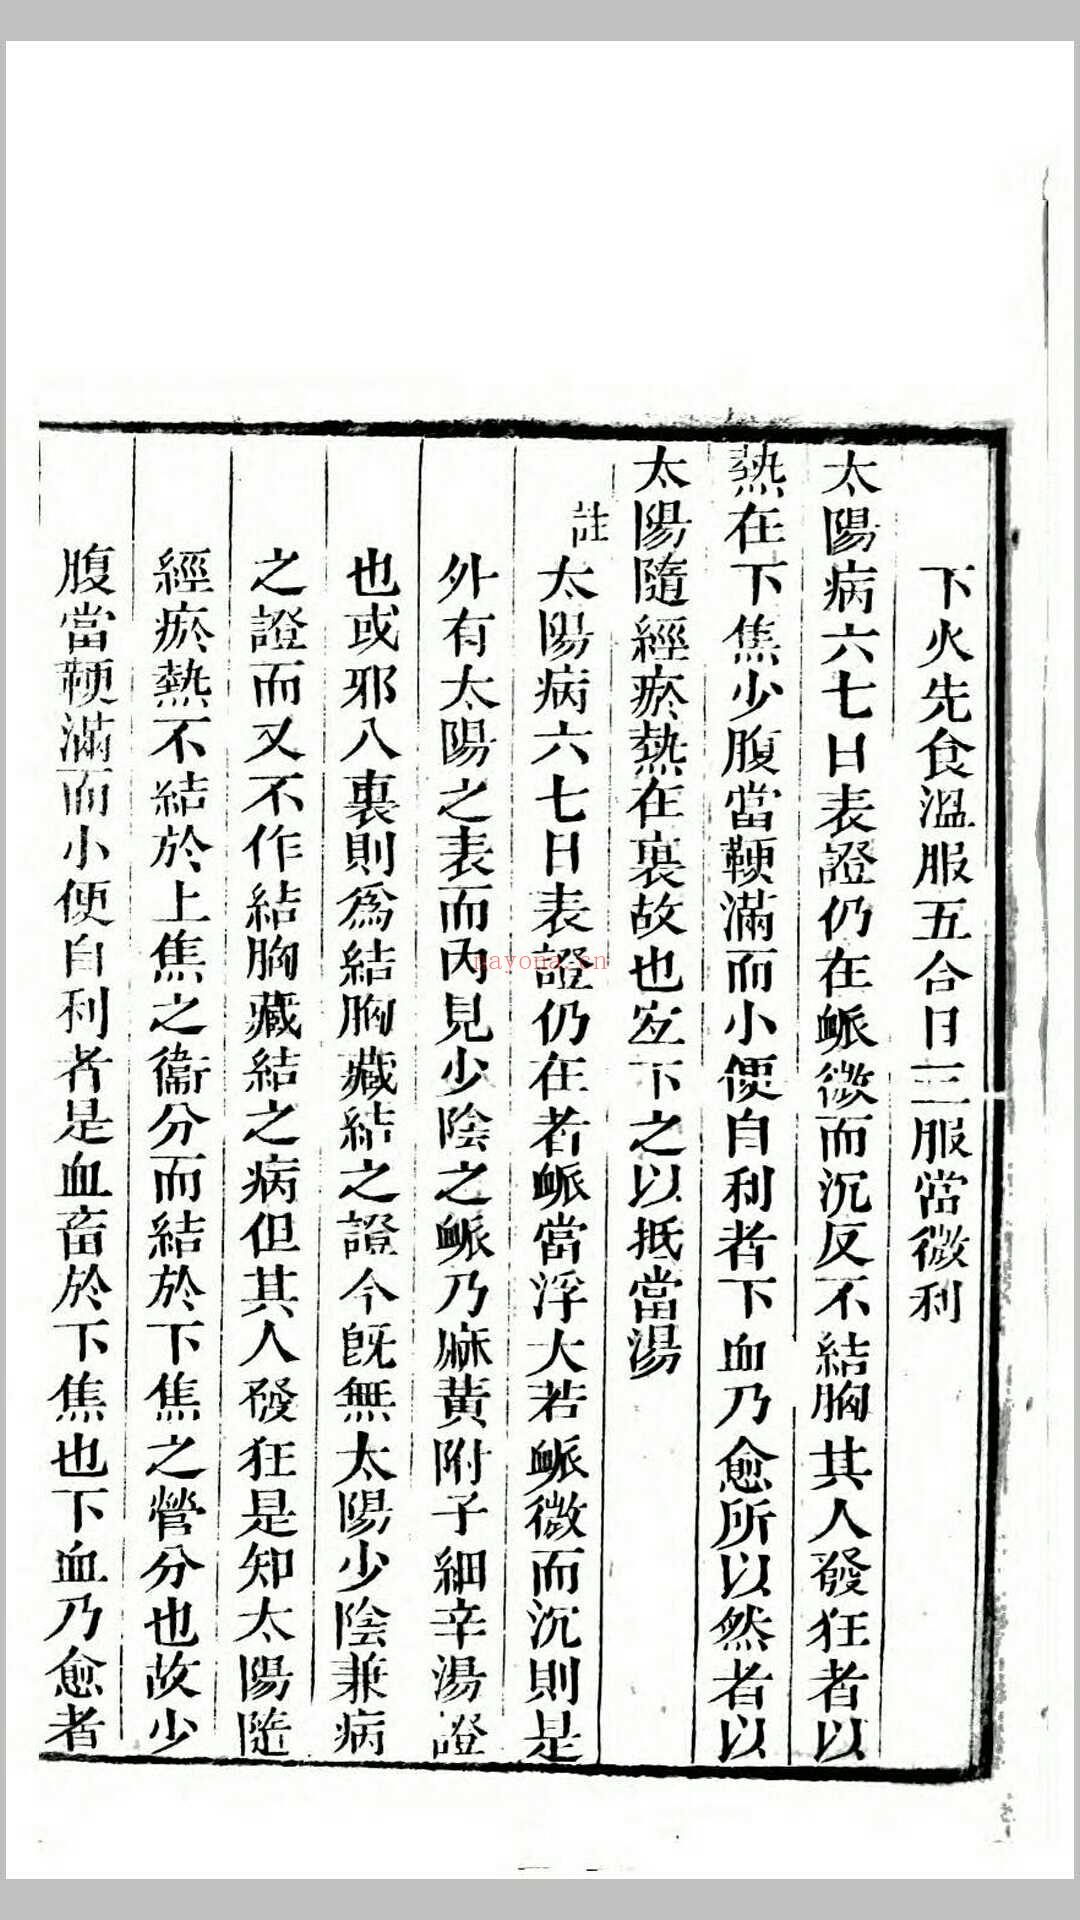 下火先食溫服五合日三服當微利
太陽病六七日表證仍在脈微而沉反不結胸其人發狂者以
熱在下焦少腹當鞕滿而小便自利者下血乃愈所以然者以
太陽隨經瘀熱在裏故也宐下之以抵當湯
註太陽病六七日表證仍在者脈當浮大若脈微而沉則是
外有太陽之表而內見少陰之脈乃麻黃附子細辛湯證
也或邪入裏則爲結胸藏結之證今旣無太陽少陰兼病
之證而又不作結胸藏結之病但其人發狂是知太陽隨
經瘀熱不結於上焦之衞分而結於下焦之營分也故少
腹當鞕滿而小便自利者是血畜於下焦也下血乃愈者
nayona.cn